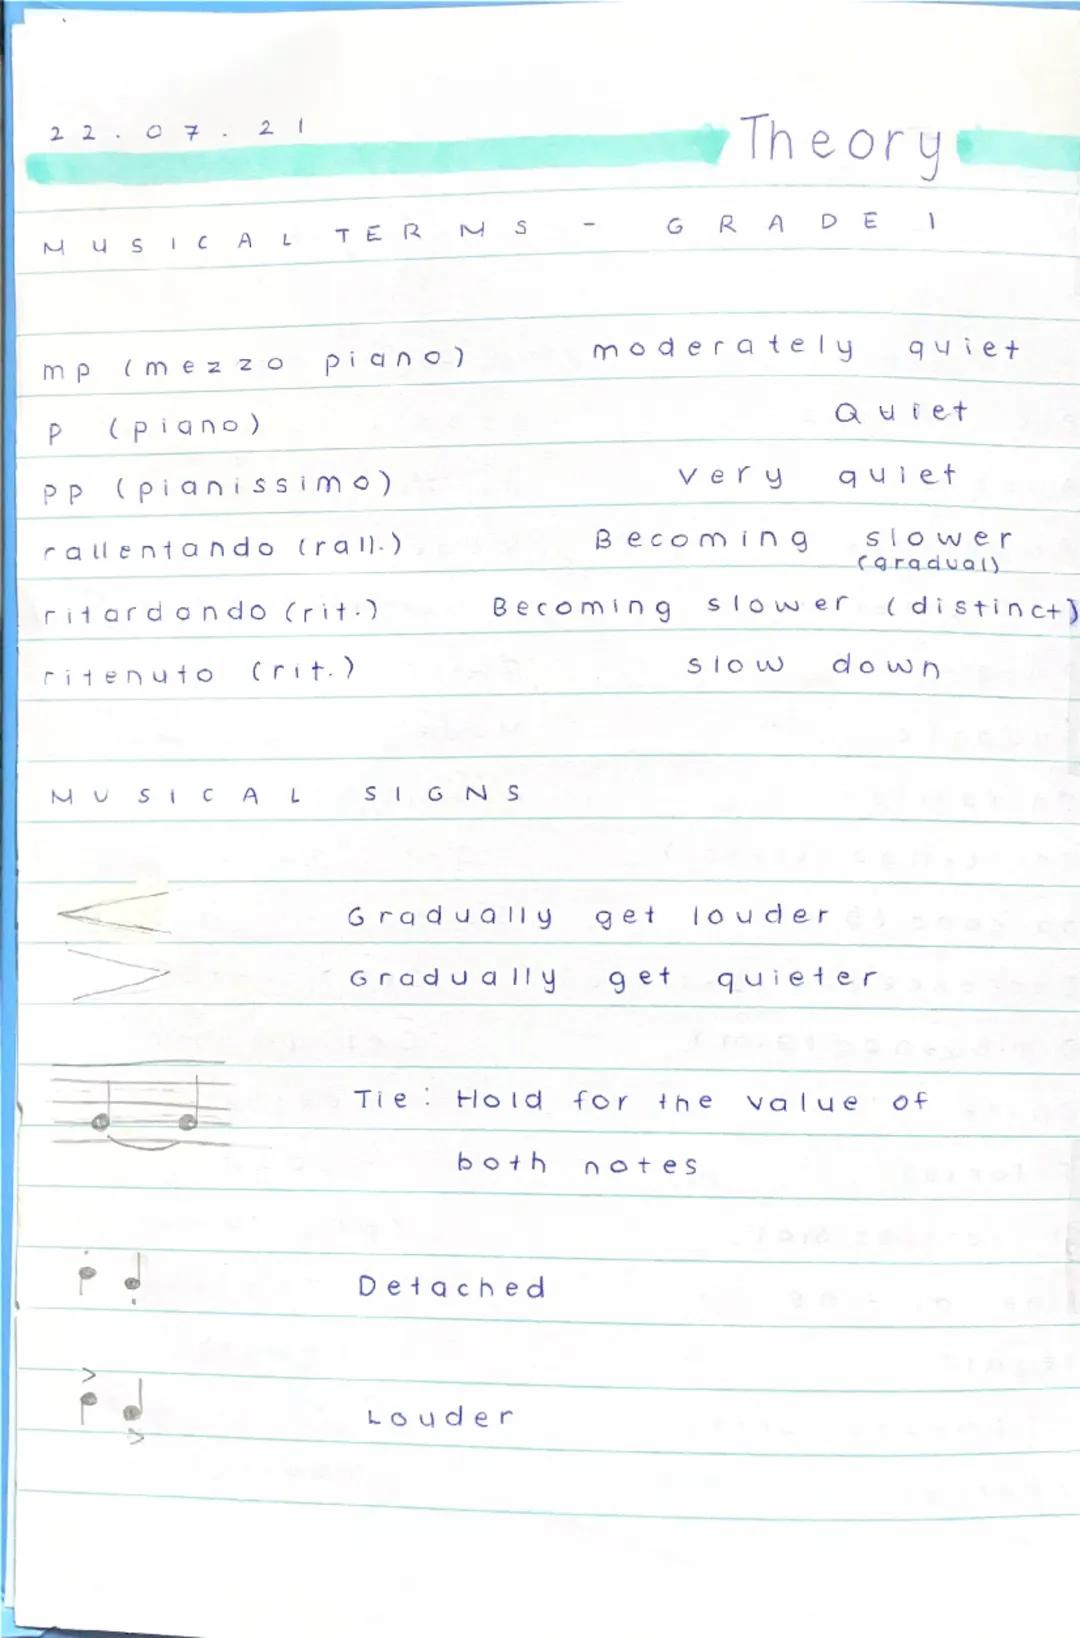 22.07.21 Theory
MUSICAL TERMS - GRADE 1
mp (mezzo piano) moderately quiet
P (piano) Quiet
PP (pianissimo) very quiet
rallentando (rall.) Becoming slower (gradual)
ritardando (rit.) Becoming slower (distinct)
ritenuto (rit.) slow down
MUSICAL SIGNS
Gradually get louder
Gradually get quieter
Tie: Hold for the value of
both notes
Detached
Louder